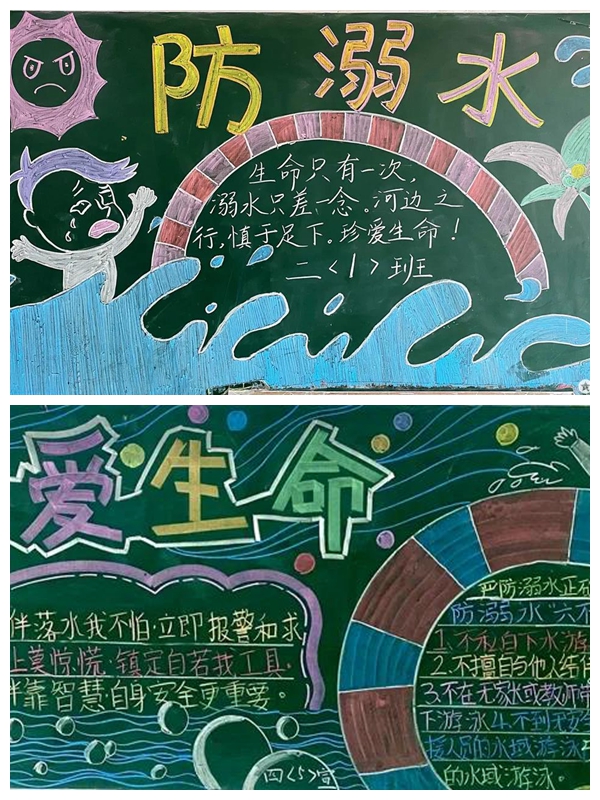 防溺水
生命只有一次,
溺水只差一念。河边之
行,慎于足下。珍爱生命!
二<1>班
爱生命
伴落水我不怕.立即报警和求
上莫惊慌.镇定自若找工具.
伴靠智慧.自身安全更重要。
四<5>宣
防溺水正确
防溺水“六不
1.不私自下水游
2.不擅自与他人结伴
3.不在无家长或教师带
下游泳4.不到无安全
援人员的水域游泳
的水域游泳。